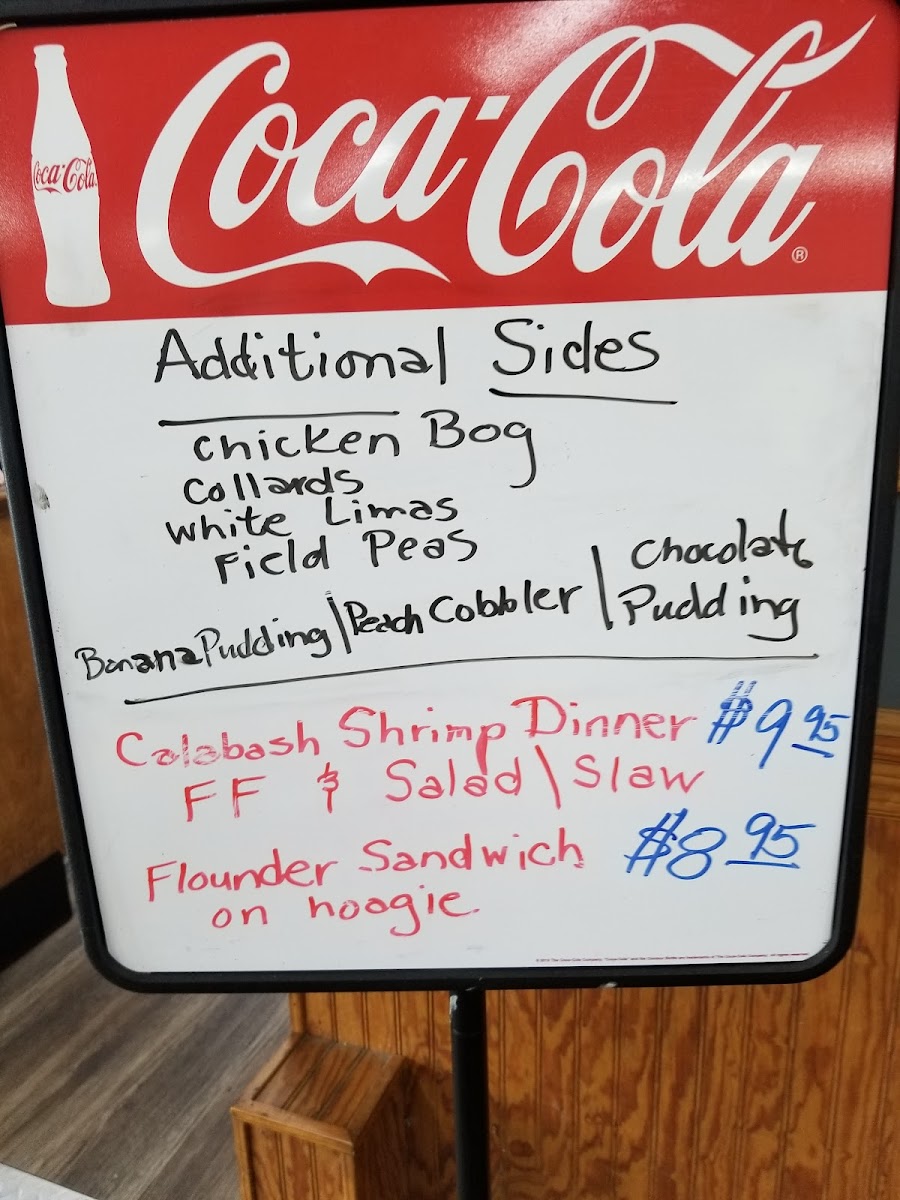 Coca-Cola
Coca-Cola®
Additional Sides
Chicken Bog
Collards
White Limas
Field Peas
Banana Pudding | Peach Cobbler | Chocolate Pudding
Calabash Shrimp Dinner $9.95
FF & Salad \ Slaw
Flounder Sandwich $8.95
on hoagie.